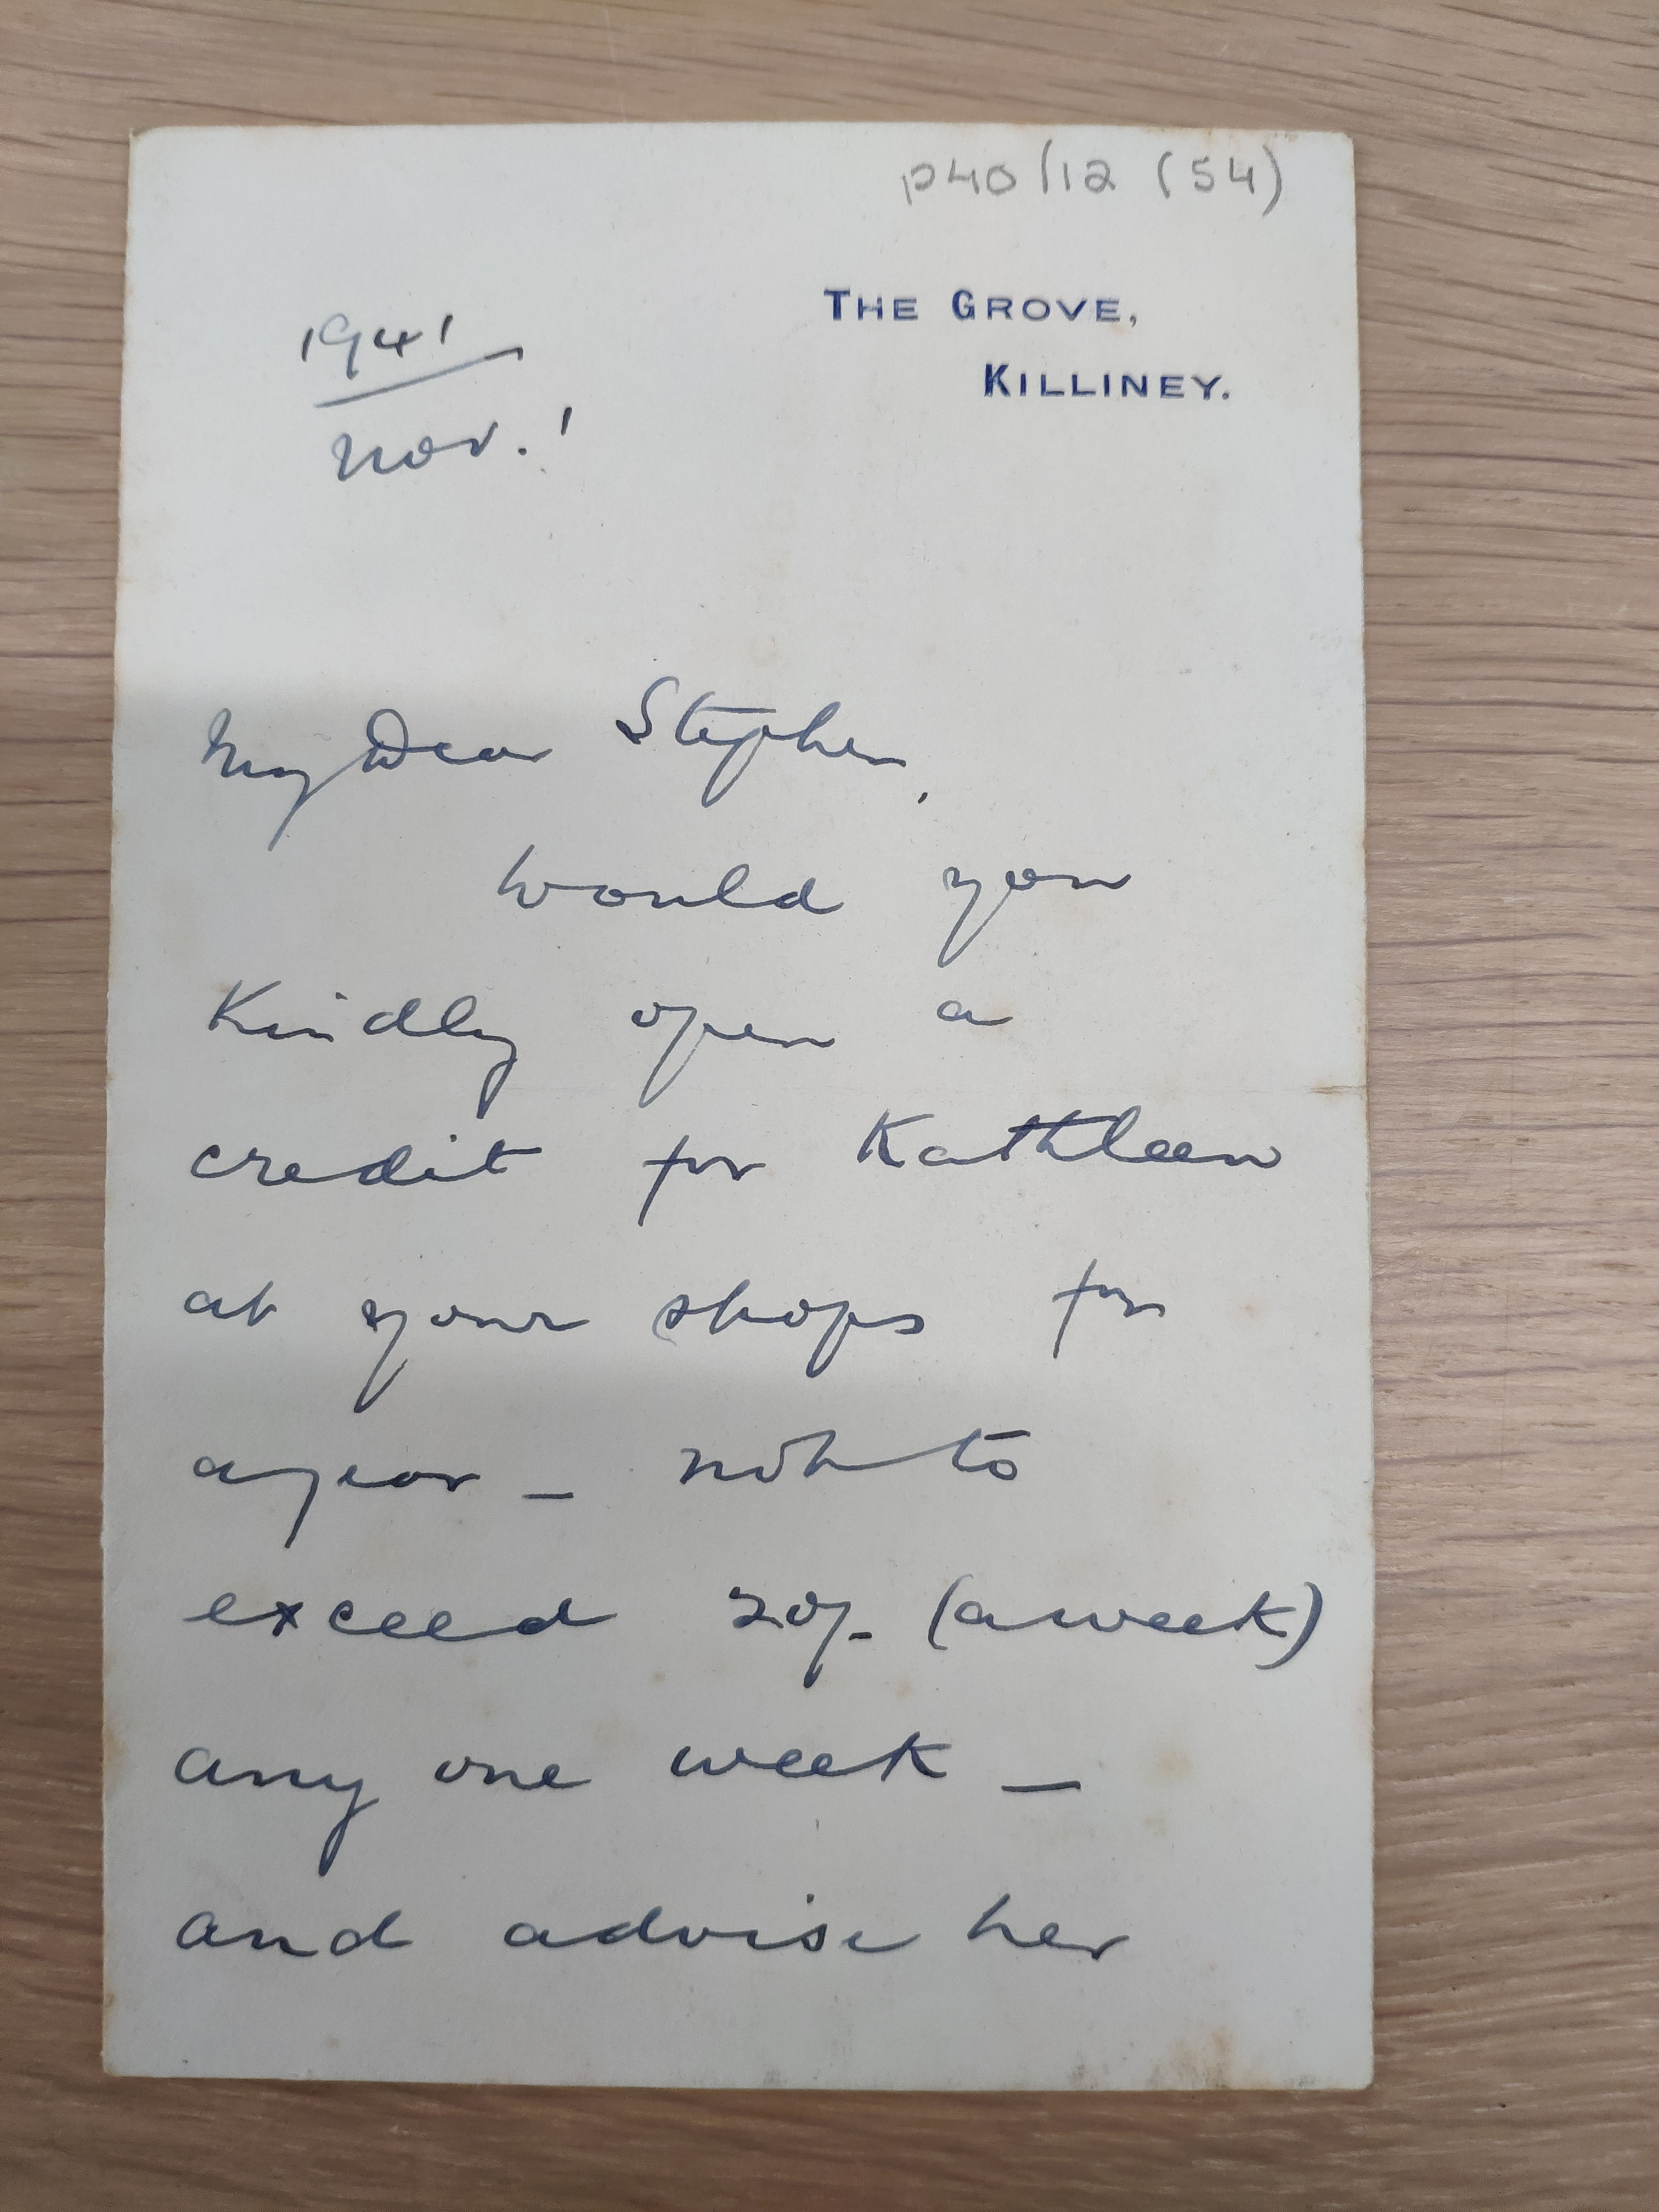 P40/12 (54)
THE GROVE,
KILLINEY.
1941
Nov. 1
My Dear Stephen,
Would you
Kindly open a
credit for Kathleen
at your shops for
a year — not to
exceed 20/- (a week)
any one week —
and advise her